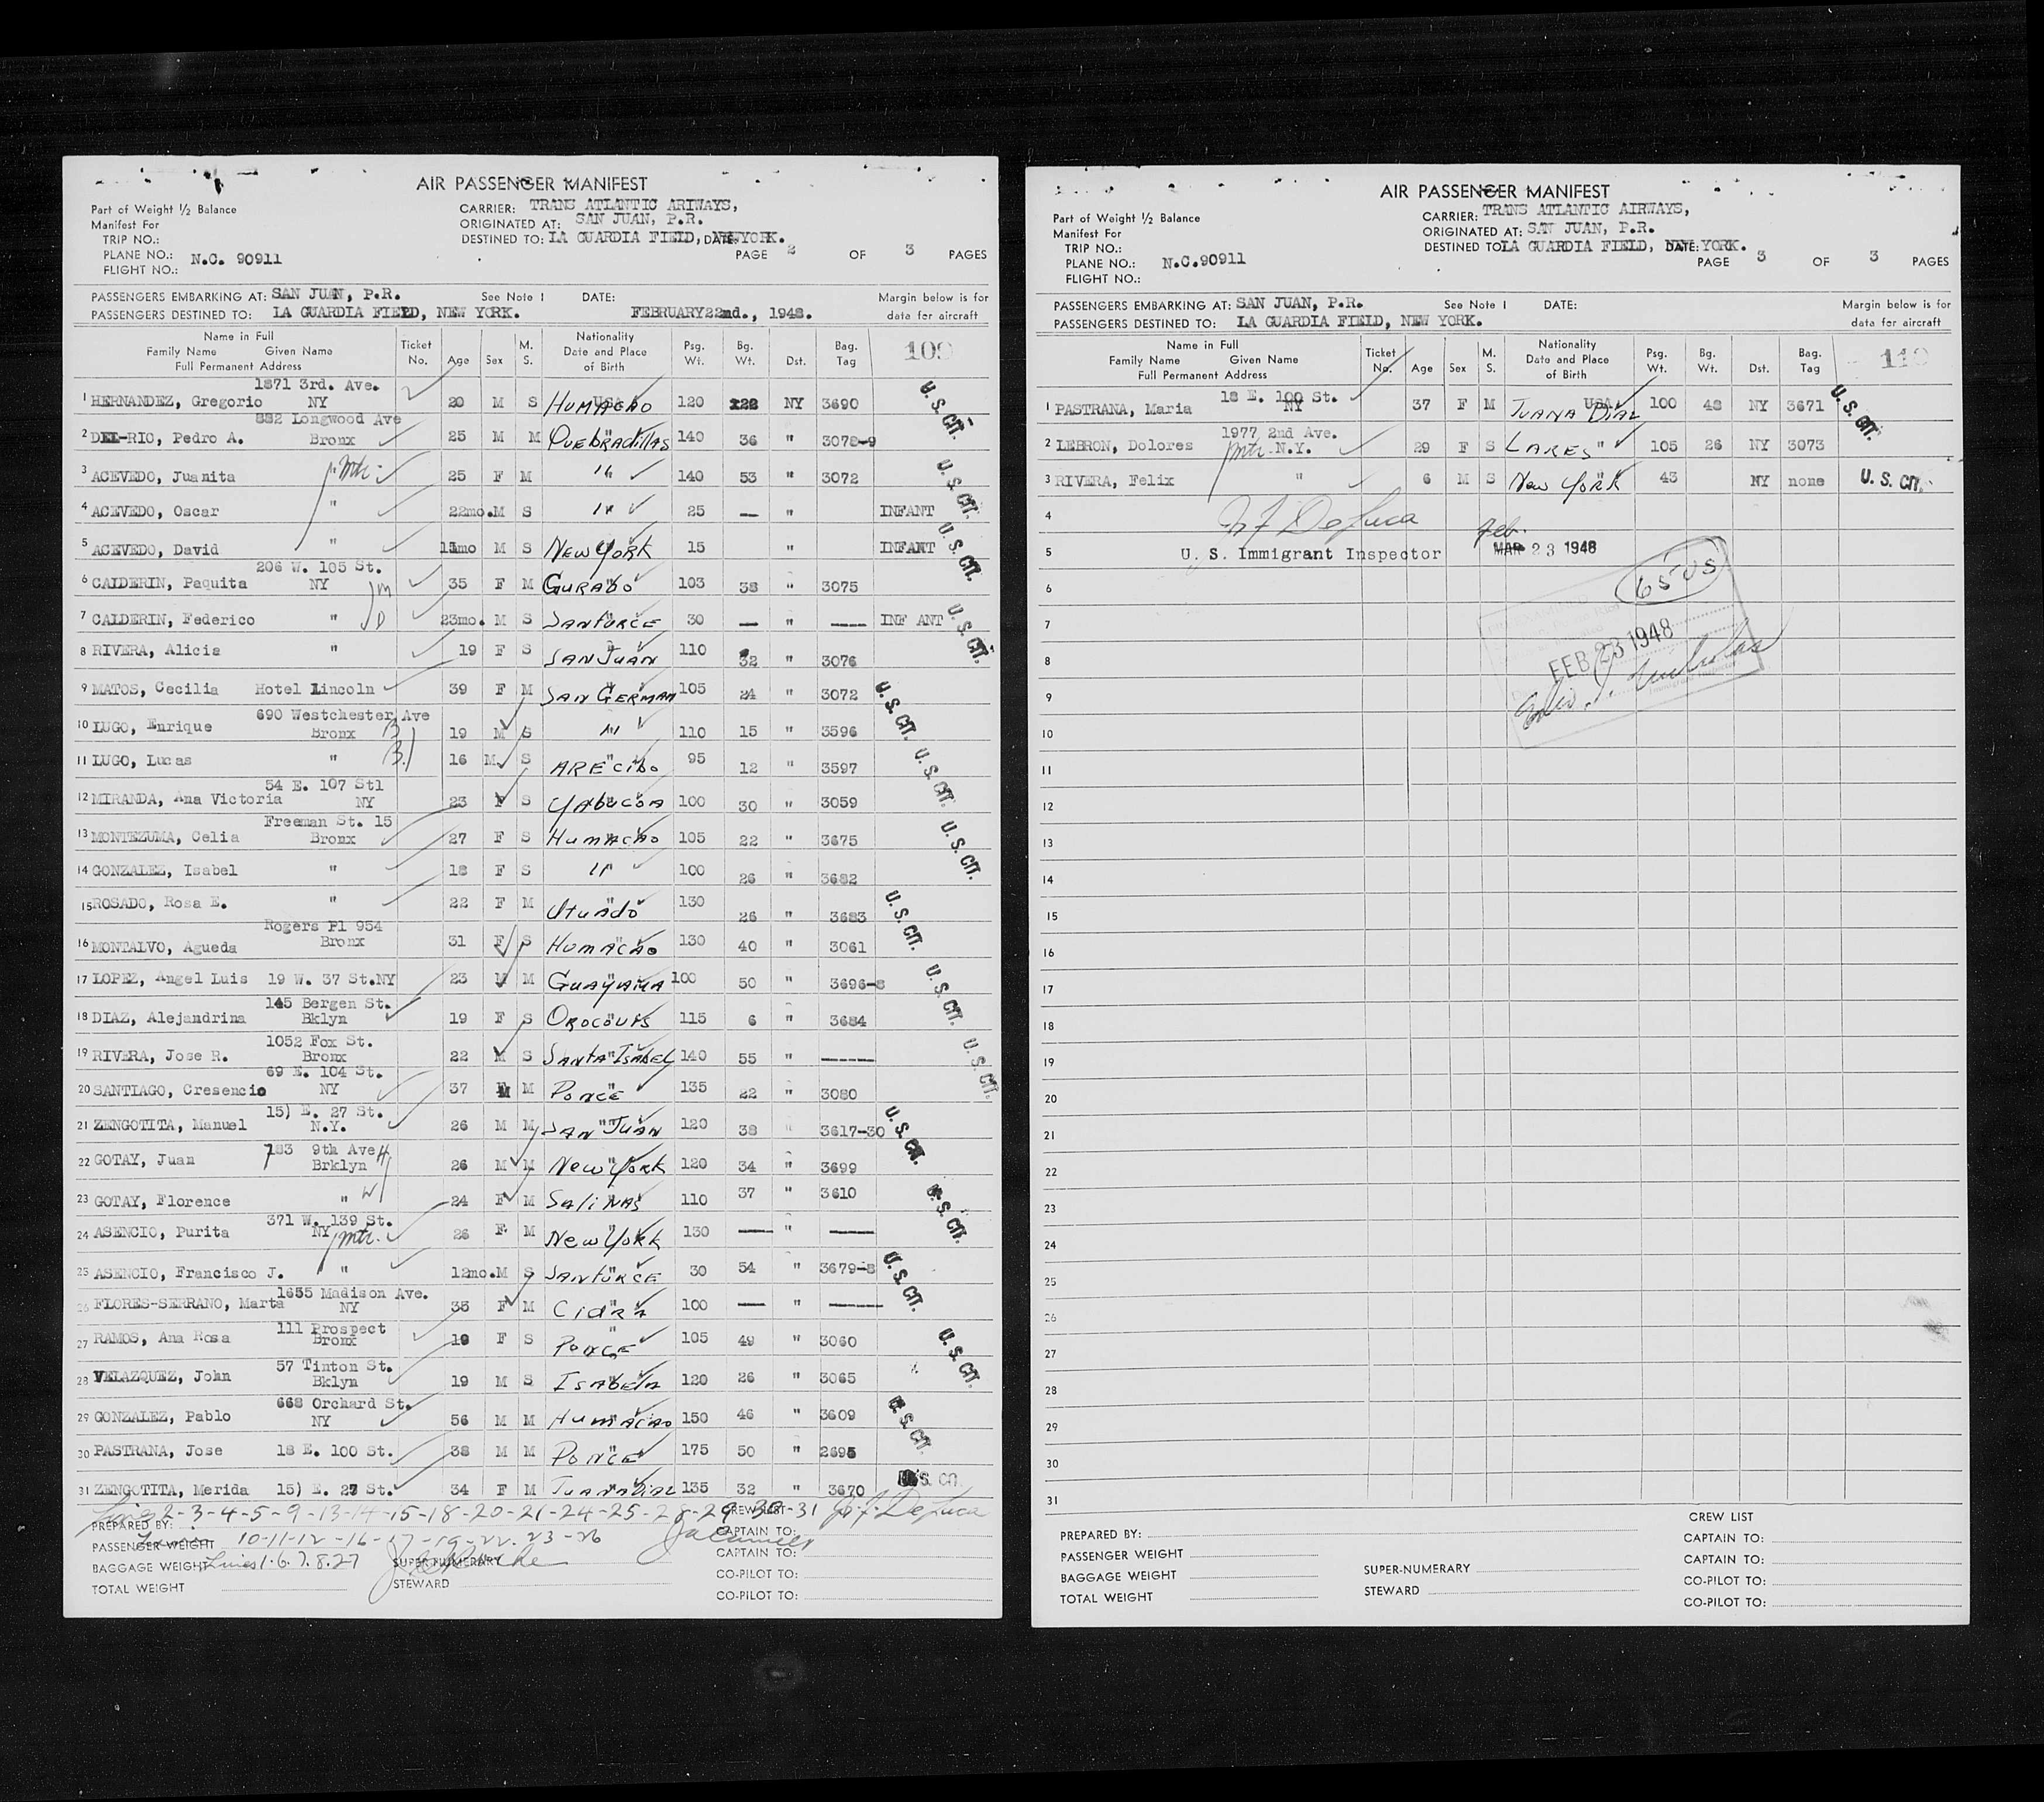 AIR PASSENGER MANIFEST
Part of Weight 1/2 Balance
Manifest For
TRIP NO.:
PLANE NO.: N.C. 90911
FLIGHT NO.:
CARRIER: TRANS ATLANTIC ARIWAYS,
ORIGINATED AT: SAN JUAN, P.R.
DESTINED TO: LA GUARDIA FIELD, DATE: YORK.
PAGE 2 OF 3 PAGES
PASSENGERS EMBARKING AT: SAN JUAN, P.R. See Note 1 DATE: Margin below is for
PASSENGERS DESTINED TO: LA GUARDIA FIELD, NEW YORK. FEBRUARY22nd., 1948. data for aircraft
Name in Full
Family Name Given Name
Full Permanent Address
Ticket No. Age Sex M. S. Nationality Date and Place of Birth Psg. Wt. Bg. Wt. Dst. Bag. Tag 109
1871 3rd. Ave.
1 HERNANDEZ, Gregorio NY 20 M S HUMACAO USA 120 NY 3690 U.S. CIT.
882 Longwood Ave
2 DEL-RIO, Pedro A. Bronx 25 M M QuebRAdillas 140 36 " 3078-9
3 ACEVEDO, Juanita Mtr. 25 F M " 140 53 " 3072 U.S. CIT.
4 ACEVEDO, Oscar " 22mo. M S " 25 — " INFANT
5 ACEVEDO, David " 11mo M S New York 15 " INFANT U.S. CIT.
206 W. 105 St.
6 CALDERIN, Paquita NY 35 F M GURAbO 103 38 " 3075
7 CALDERIN, Federico " 23mo. M S SANTURCE 30 — " ---- INF ANT U.S. CIT.
8 RIVERA, Alicia " 19 F S SAN JUAN 110 32 " 3076
9 MATOS, Cecilia Hotel Lincoln 39 F M SAN GERMAN 105 24 " 3072 U.S. CIT.
690 Westchester Ave
10 LUGO, Enrique Bronx 19 M S " 110 15 " 3596
11 LUGO, Lucas " 16 M S ARECIbo 95 12 " 3597 U.S. CIT.
54 E. 107 Stl
12 MIRANDA, Ana Victoria NY 23 F S YAbucoA 100 30 " 3059
Freeman St. 15
13 MONTEZUMA, Celia Bronx 27 F S HumACAO 105 22 " 3675 U.S. CIT.
14 GONZALEZ, Isabel " 18 F S " 100 26 " 3682
15 ROSADO, Rosa E. " 22 F M UtuAdo 130 26 " 3683 U.S. CIT.
Rogers Pl 954
16 MONTALVO, Agueda Bronx 31 F S HumACAo 130 40 " 3061
17 LOPEZ, Angel Luis 19 W. 37 St.NY 23 M M GuayAmA 100 50 " 3696-8 U.S. CIT.
145 Bergen St.
18 DIAZ, Alejandrina Bklyn 19 F S OROCOUIS 115 6 " 3684
1052 Fox St.
19 RIVERA, Jose R. Bronx 22 M S SANTA ISABEL 140 55 " ----- U.S. CIT.
69 E. 104 St.
20 SANTIAGO, Cresencio NY 37 M M PONCE 135 22 " 3080
15) E. 27 St.
21 ZENGOTITA, Manuel N.Y. 26 M M SAN JUAN 120 38 " 3617-30 U.S. CIT.
783 9th Ave
22 GOTAY, Juan Brklyn 26 M M New York 120 34 " 3699
23 GOTAY, Florence " 24 F M SaliNAS 110 37 " 3610 U.S. CIT.
371 W. 139 St.
24 ASENCIO, Purita NY Mtr. 26 F M New York 130 — " —
25 ASENCIO, Francisco J. " 12mo. M S SANTURCE 30 54 " 3679-8 U.S. CIT.
1655 Madison Ave.
26 FLORES-SERRANO, Marta NY 35 F M CidRA 100 — " —
111 Prospect
27 RAMOS, Ana Rosa Bronx 19 F S PONCE 105 49 " 3060 U.S. CIT.
57 Tinton St.
28 VELAZQUEZ, John Bklyn 19 M S ISABELA 120 26 " 3065
668 Orchard St.
29 GONZALEZ, Pablo NY 56 M M HumACAO 150 46 " 3609 U.S. CIT.
30 PASTRANA, Jose 18 E. 100 St. 38 M M PONCE 175 50 " 2695
31 ZENGOTITA, Merida 15) E. 27 St. 34 F M JUANADIAZ 135 32 " 3670 U.S. CIT.
Lines 2-3-4-5-9-13-14-15-18-20-21-24-25-28-29-30-31 De Luca
PREPARED BY: CREW LIST
PASSENGER WEIGHT 10-11-12-16-17-19-22-23-26 CAPTAIN TO:
BAGGAGE WEIGHT Lines 1.6.7.8.27 SUPER-NUMERARY CAPTAIN TO:
TOTAL WEIGHT STEWARD CO-PILOT TO:
CO-PILOT TO:
AIR PASSENGER MANIFEST
Part of Weight 1/2 Balance
Manifest For
TRIP NO.:
PLANE NO.: N.C.90911
FLIGHT NO.:
CARRIER: TRANS ATLANTIC AIRWAYS,
ORIGINATED AT: SAN JUAN, P.R.
DESTINED TO LA GUARDIA FIELD, DATE: YORK.
PAGE 3 OF 3 PAGES
PASSENGERS EMBARKING AT: SAN JUAN, P.R. See Note 1 DATE: Margin below is for
PASSENGERS DESTINED TO: LA GUARDIA FIELD, NEW YORK. data for aircraft
Name in Full
Family Name Given Name
Full Permanent Address
Ticket No. Age Sex M. S. Nationality Date and Place of Birth Psg. Wt. Bg. Wt. Dst. Bag. Tag 110
18 E. 100 St.
1 PASTRANA, Maria NY 37 F M JUANA DIAZ USA 100 48 NY 3671 U.S. CIT.
1977 2nd Ave.
2 LEBRON, Dolores Mtr. N.Y. 29 F S LARES " 105 26 NY 3073
3 RIVERA, Felix " 6 M S New York 43 NY none U.S. CIT.
4 De Luca Feb.
5 U. S. Immigrant Inspector MAR 23 1948
6 65 US
7
8 FEB 23 1948
9
10
11
12
13
14
15
16
17
18
19
20
21
22
23
24
25
26
27
28
29
30
31
CREW LIST
PREPARED BY: CAPTAIN TO:
PASSENGER WEIGHT CAPTAIN TO:
BAGGAGE WEIGHT SUPER-NUMERARY CO-PILOT TO:
TOTAL WEIGHT STEWARD CO-PILOT TO: